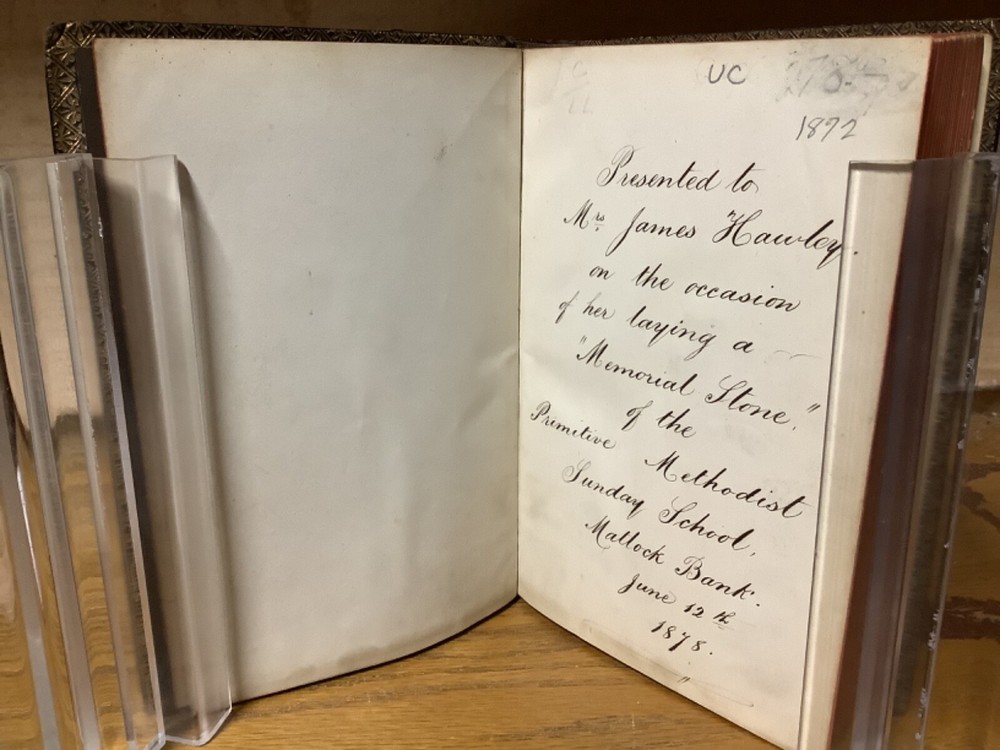 UC
1872
Presented to
Mrs James Hawley.
on the occasion
of her laying a
"Memorial Stone."
of the
Primitive Methodist
Sunday School,
Matlock Bank.
June 12th
1878.
"